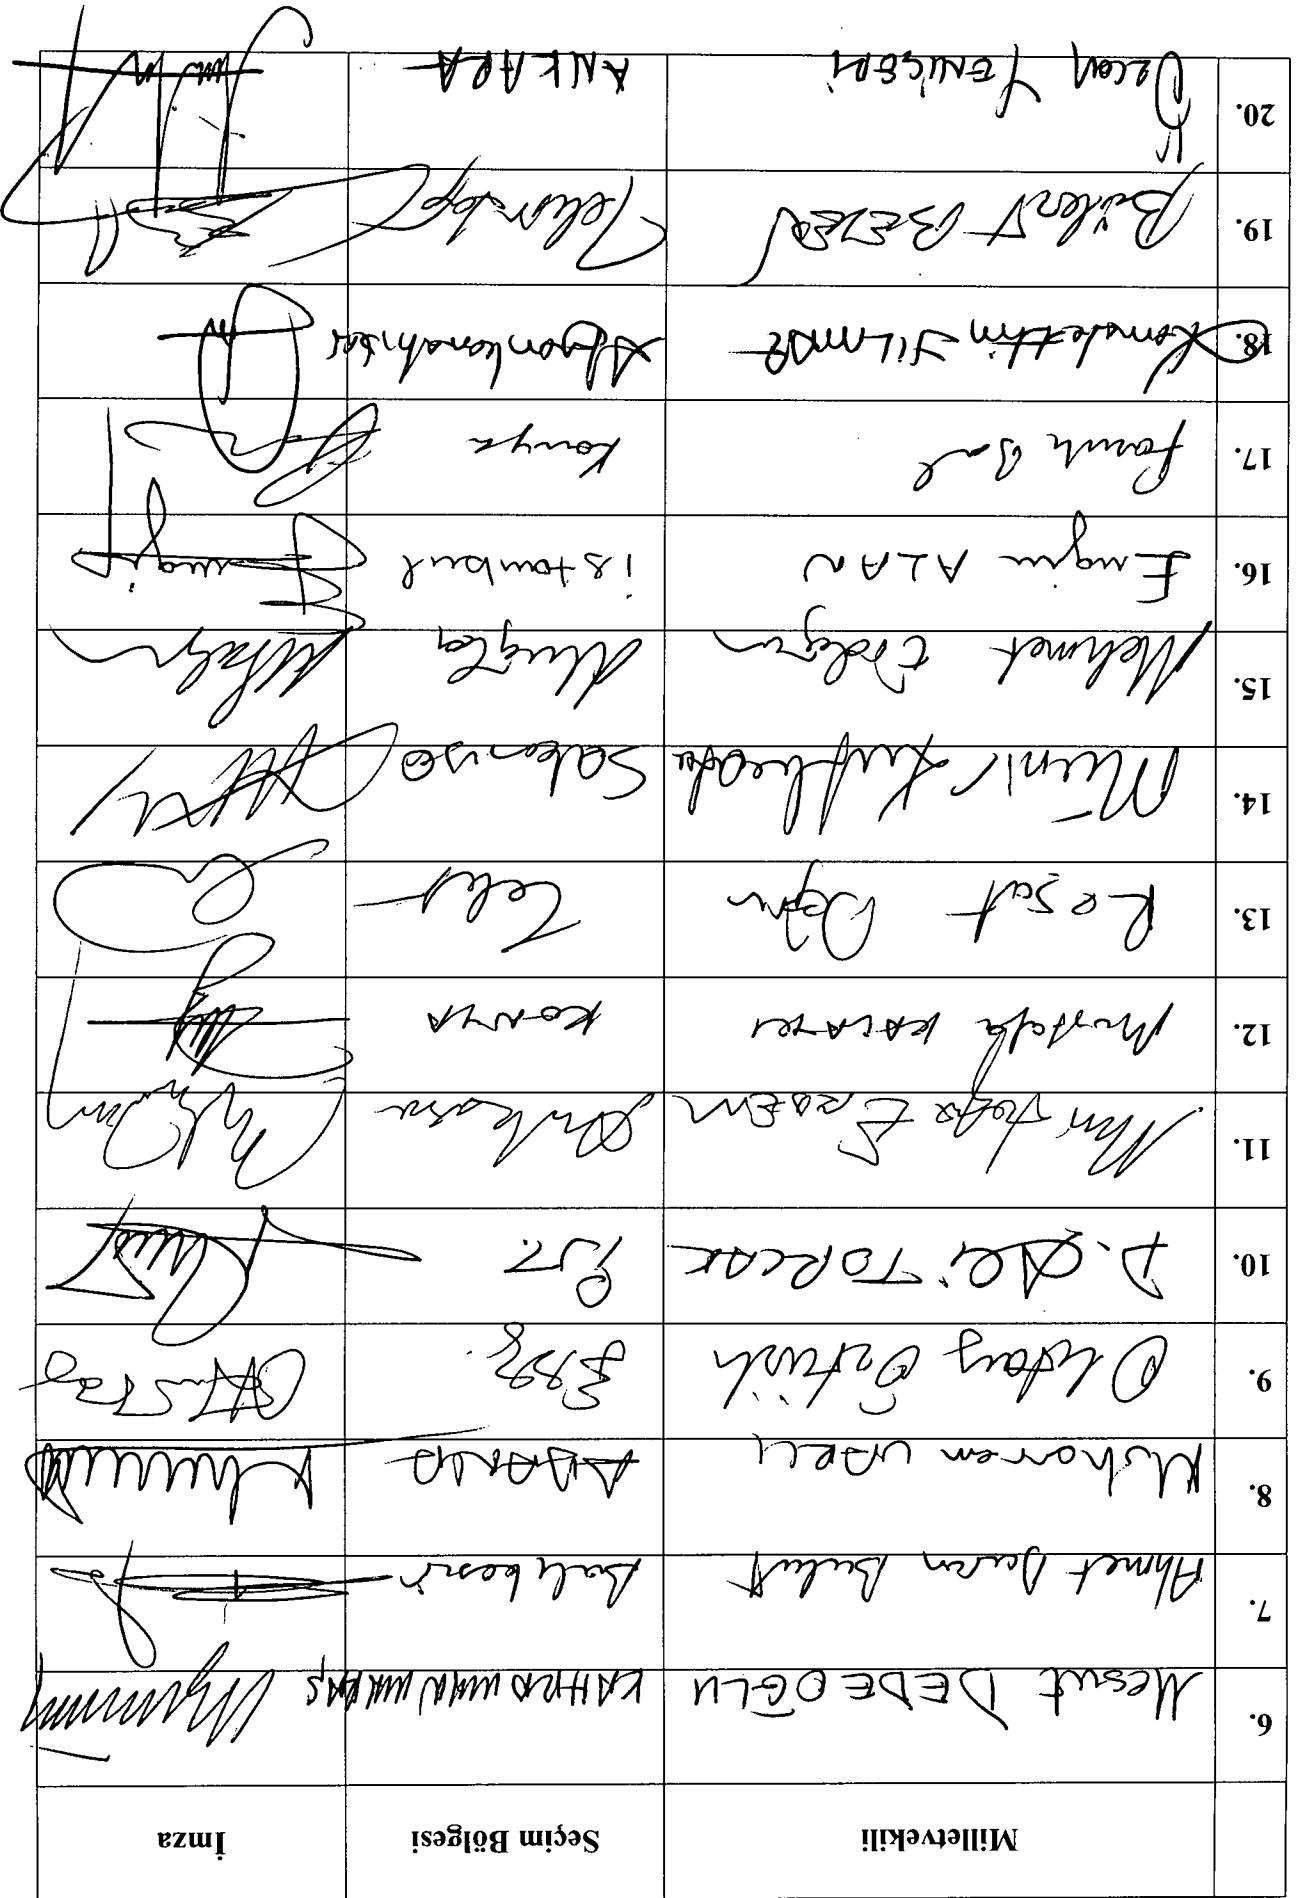 Milletvekili Seçim Bölgesi İmza
6. Mesut DEDEOĞLU KAHRAMANMARAŞ
7. Ahmet Duran Bulut Balıkesir
8. Muharrem VARLI ADANA
9. Oktay Öztürk
10. D. Ali TORLAK İST.
11. Mustafa ERDEM Ankara
12. Mustafa KALAYCI KONYA
13. Reşat Doğru Tokat
14. Münir Kutluata Sakarya
15. Mehmet Erdoğan Muğla
16. Engin ALAN istanbul
17. Faruk Bal Konya
18. Kemalettin YILMAZ Afyonkarahisar
19. Bülent BELEN Tekirdağ
20. Özcan YENİÇERİ ANKARA